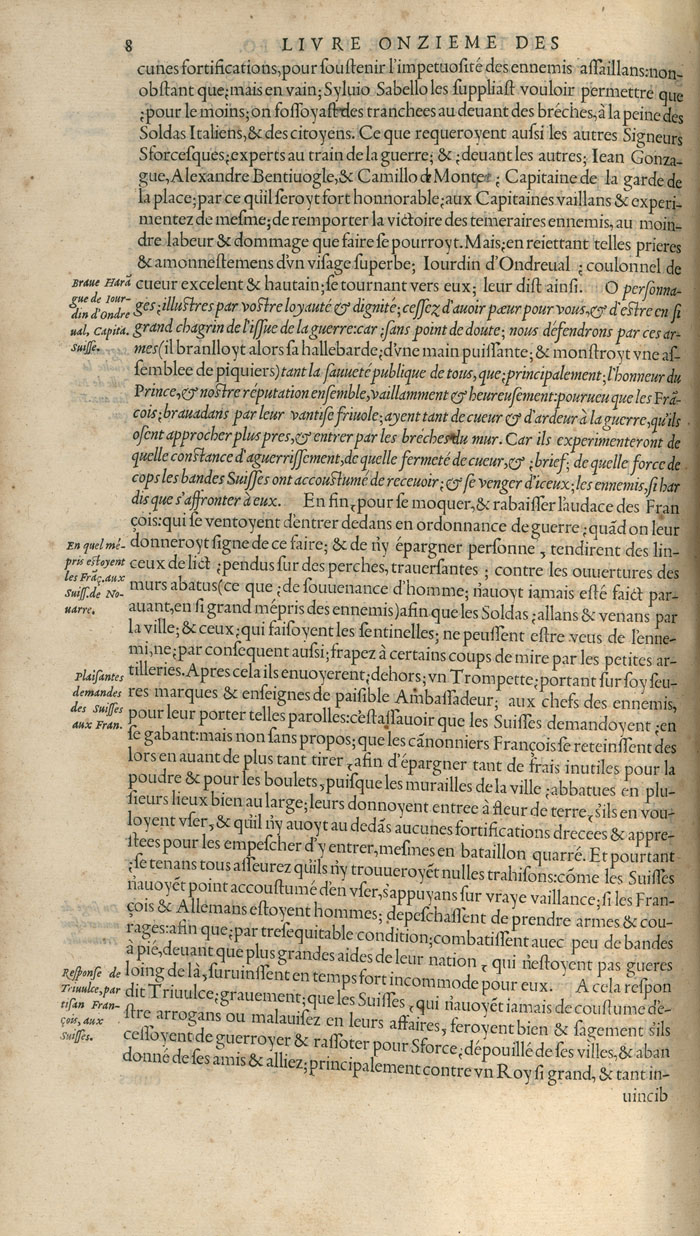 8 LIVRE ONZIEME DES
cunes fortifications, pour ſouſtenir l'impetuoſité des ennemis aſſaillans: non-
obſtant que; mais en vain; Syluio Sabello les ſuppliaſt vouloir permettre que
;pour le moins; on foſſoyaſt des tranchees au deuant des bréches, à la peine des
Soldas Italiens, & des citoyens. Ce que requeroyent auſsi les autres Signeurs
Sforceſques; experts au train de la guerre; & ;deuant les autres; Iean Gonza-
gue, Alexandre Bentiuogle, & Camillo de Monte ; Capitaine de la garde de
la place; par ce qu'il ſeroyt fort honnorable; aux Capitaines vaillans & experi-
mentez de meſme; de remporter la victoire des temeraires ennemis, au moin-
dre labeur & dommage que faire ſe pourroyt. Mais; en reiettant telles prieres
& amonneſtemens d'vn viſage ſuperbe; Iourdin d'Ondreual ; coulonnel de
Braue Harã
gue de Iour-
din d'Ondre
ual, Capita.
Suiſſe.
cueur excelent & hautain; ſe tournant vers eux; leur diſt ainſi. O perſonna-
ges; illuſtres par voſtre loyauté & dignité; ceſſez d'auoir pœur pour vous, & d'eſtre en ſi
grand chagrin de l'iſſue de la guerre: car ;ſans point de doute; nous défendrons par ces ar-
mes (il branlloyt alors ſa hallebarde; d'vne main puiſſante; & monſtroyt vne aſ-
ſemblee de piquiers) tant la ſauueté publique de tous, que; principalement; l'honneur du
Prince, & noſtre réputation enſemble, vaillamment & heureuſement: pourueu que les Frã-
cois; brauadans par leur vantiſe friuole; ayent tant de cueur & d'ardeur à la guerre, qu'ils
oſent approcher plus pres, & entrer par les bréches du mur. Car ils experimenteront de
quelle conſtance d'aguerriſſement, de quelle fermeté de cueur, & ;brief; de quelle force de
cops les bandes Suiſſes ont accouſtumé de receuoir; & ſe venger d'iceux; les ennemis, ſi har
dis que s'affronter à eux. En fin, pour ſe moquer, & rabaiſſer l'audace des Fran
çois: qui ſe ventoyent d'entrer dedans en ordonnance de guerre; quãd on leur
En quel mé-
pris eſtoyent
les Frãç. aux
Suiſſ. de No-
uarre.
donneroyt ſigne de ce faire; & de n'y épargner perſonne , tendirent des lin-
ceux de lict ; pendus ſur des perches, trauerſantes ; contre les ouuertures des
murs abatus (ce que ;de ſouuenance d'homme; n'auoyt iamais eſté faict par-
auant, en ſi grand mépris des ennemis) afin que les Soldas ;allans & venans par
la ville; & ceux; qui faiſoyent les ſentinelles; ne peuſſent eſtre veus de l'enne-
mi, ne; par conſequent auſsi; frapez à certains coups de mire par les petites ar-
Plaiſantes
demandes
des Suiſſes
aux Fran.
tilleries. Apres cela ils enuoyerent; dehors; vn Trompette; portant ſur ſoy ſeu-
res marques & enſeignes de paiſible Ambaſſadeur; aux chefs des ennemis,
pour leur porter telles parolles: c'eſtaſſauoir que les Suiſſes demandoyent ;en
ſe gabant: mais non ſans propos; que les cãnonniers François ſe reteinſſent dés
lors en auant de plus tant tirer, afin d'épargner tant de frais inutiles pour la
poudre & pour les boulets, puiſque les murailles de la ville ;abbatues en plu-
ſieurs lieux bien au large; leurs donnoyent entree à fleur de terre, s'ils en vou-
loyent vſer, & qu'il n'y auoyt au dedãs aucunes fortifications drecées & appre-
ſtées pour les empeſcher d'y entrer, meſmes en bataillon quarré. Et pourtant
;ſe tenans tous aſſeurez qu'ils n'y trouueroyẽt nulles trahiſons: cõme les Suiſſes
n'auoyẽt point accouſtumé d'en vſer, s'appuyans ſur vraye vaillance; ſi les Fran-
çois & Allemans eſtoyent hommes; depeſchaſſent de prendre armes & cou-
rages: afin que; par treſequitable condition; combatiſſent auec peu de bandes
à pié, deuant que plus grandes aides de leur nation , qui n'eſtoyent pas gueres
Reſponſe de
Triuulce, par
tiſan Fran-
çois, aux
Suiſſes.
loing de là, ſuruinſſent en temps fort incommode pour eux. A cela reſpon
dit Triuulce; grauement; que les Suiſſes , qui n'auoyẽt iamais de couſtume d'e-
ſtre arrogans ou malauiſez en leurs affaires, feroyent bien & ſagement s'ils
ceſſoyent de guerroyer & raſſoter pour Sforce; dépouillé de ſes villes, & aban
donné de ſes amis & alliez; principalement contre vn Roy ſi grand, & tant in-
uincib